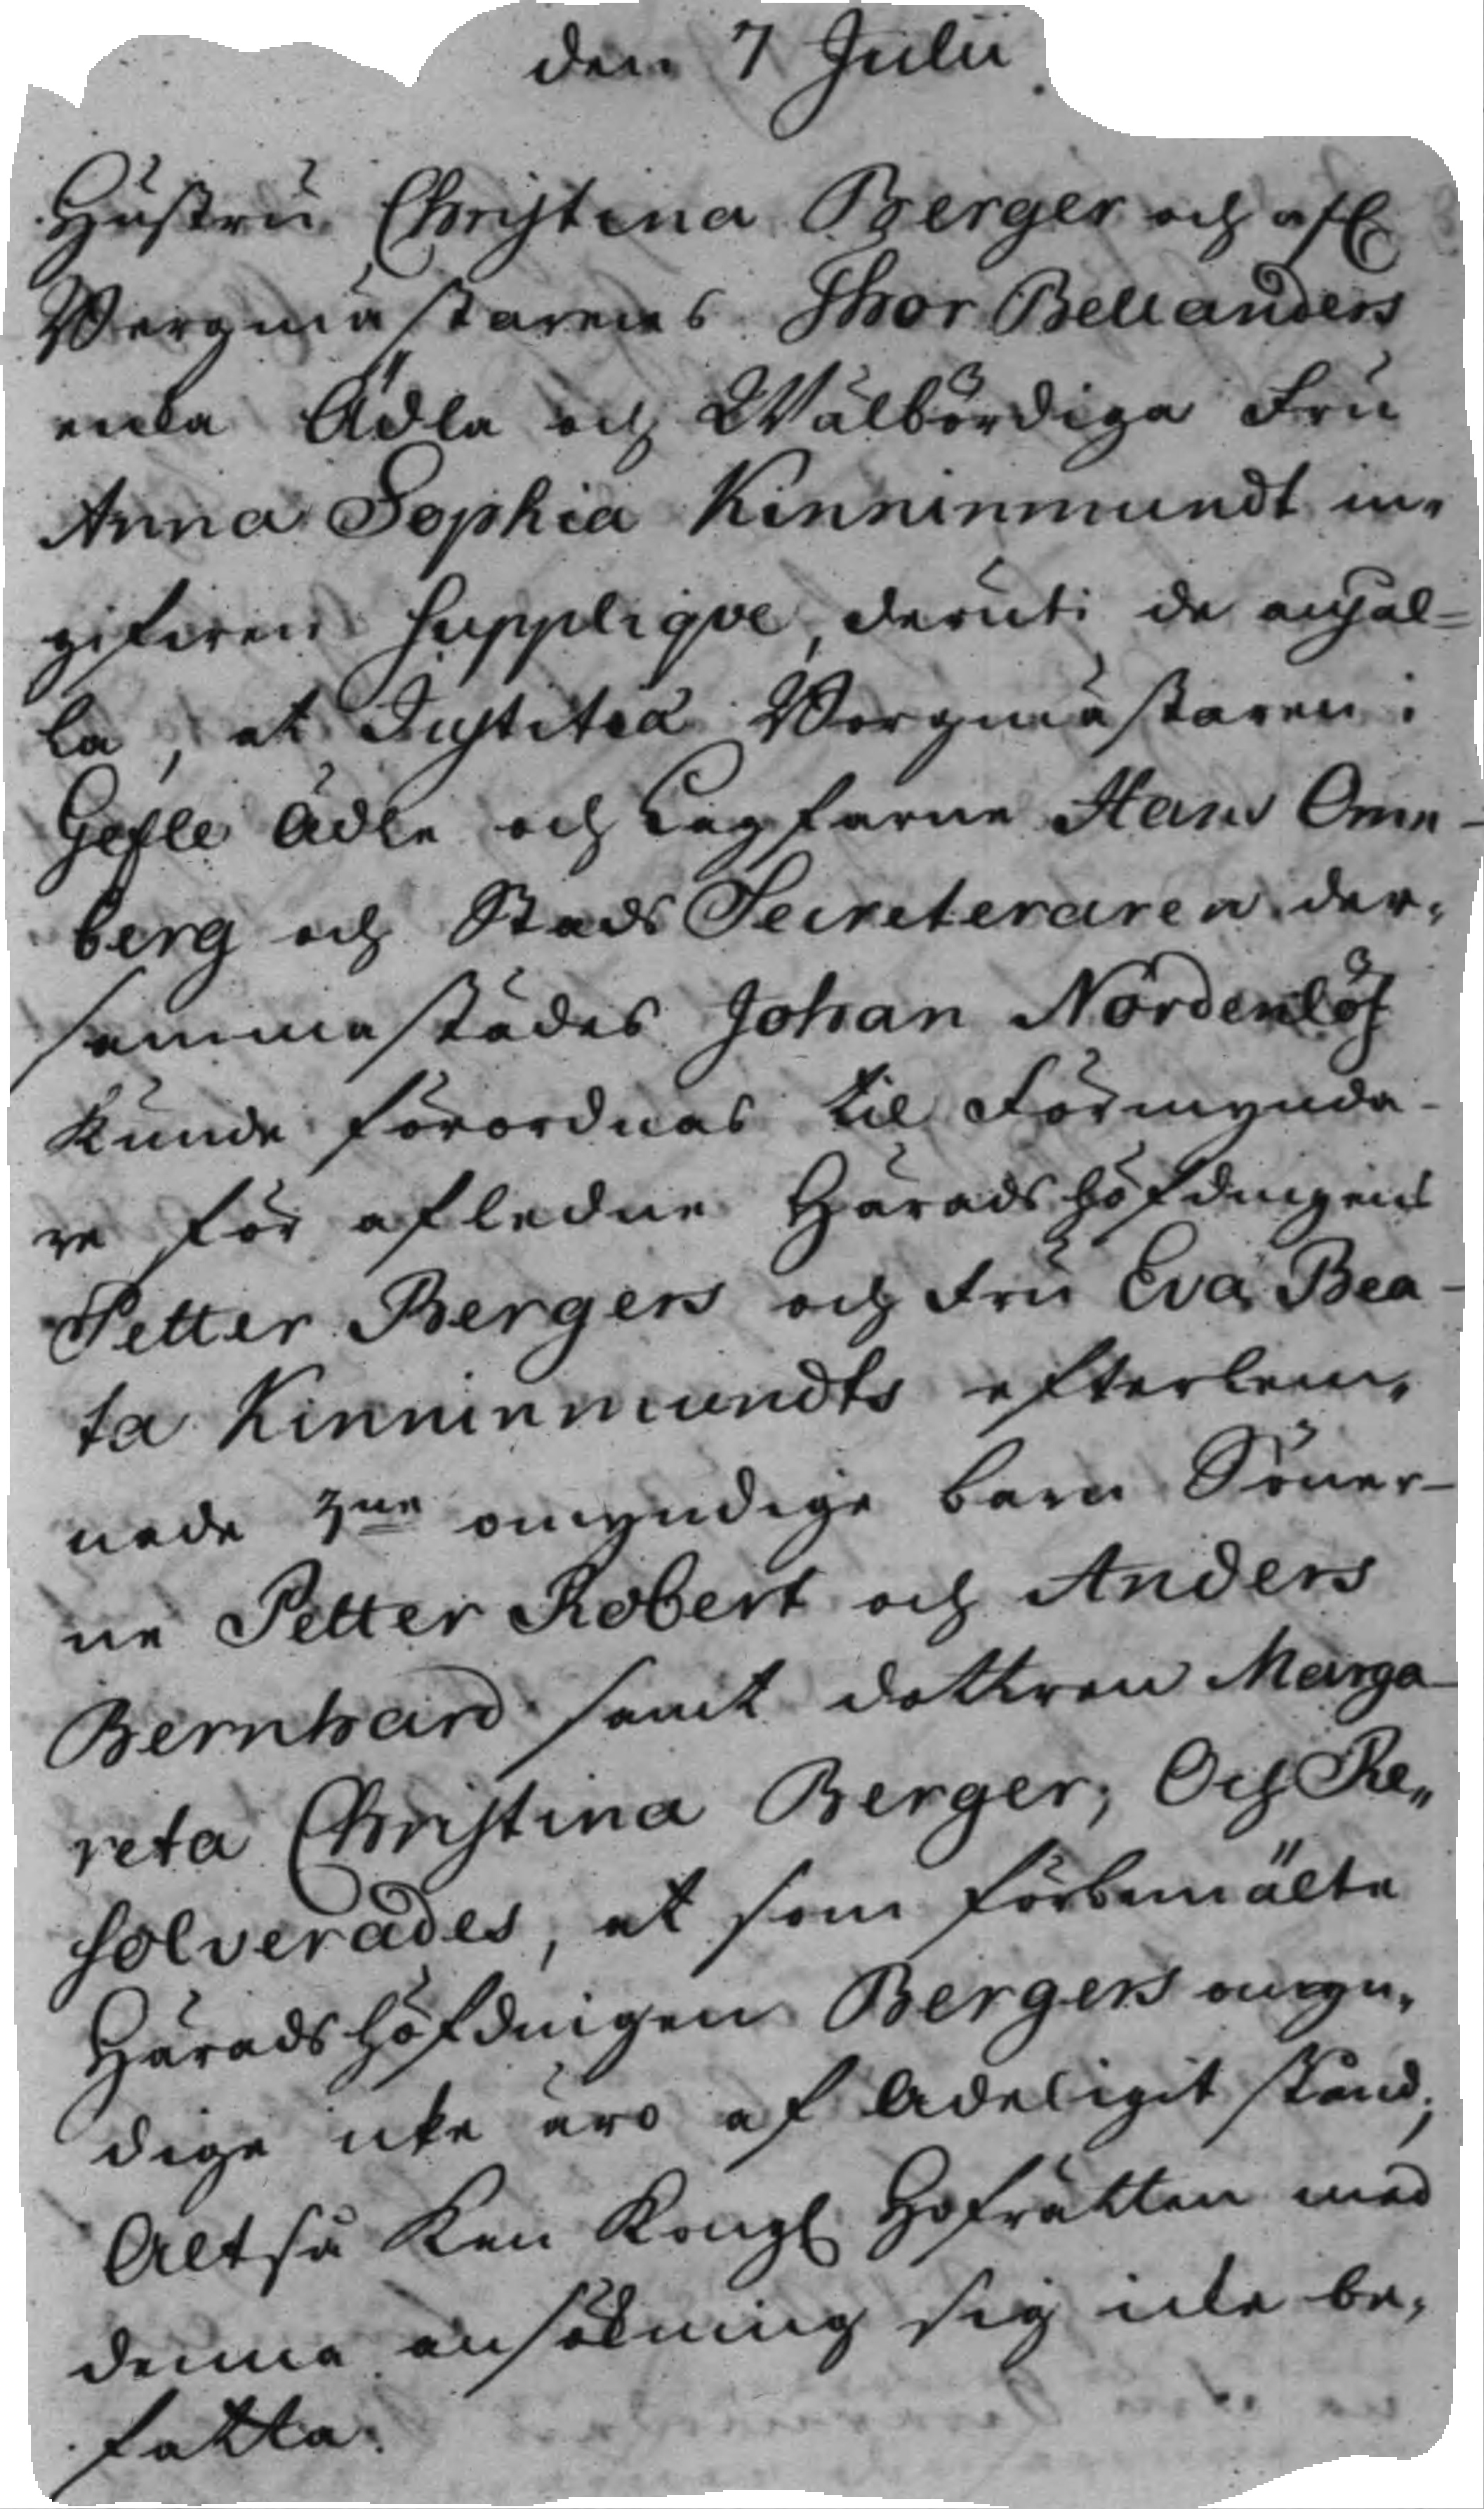 den 7 Julii
Hustru Christina Berger och afl
Borgmästarens Thor Bellanders
enka Ädla och Wälbördiga Fru
Anna Sophia Kinninmundt in-
gifven supplique, deruti de anhål-
la, at Justitiæ Borgmästaren i
Gefle Ädle och Lagfarne Hans Onn-
berg och Stads Secreteraren der-
sammastädes Johan Nordenlöf
kunde förordnas til Förmynda-
re för afledne Häradshöfdingens
Petter Bergers och Fru Eva Bea-
ta Kinninmundts efterlem-
nade 3ne omyndige barn Söner-
ne Petter Robert och Anders
Bernhard samt dottren Marga-
reta Christina Berger; Och Re-
solverades, at som förbemälte
Häradshöfdingen Bergers omyn-
dige icke äro af Adeligit stånd;
Altså kan Kongl Hofrätten med
denna ansökning sig icke be-
fatta.